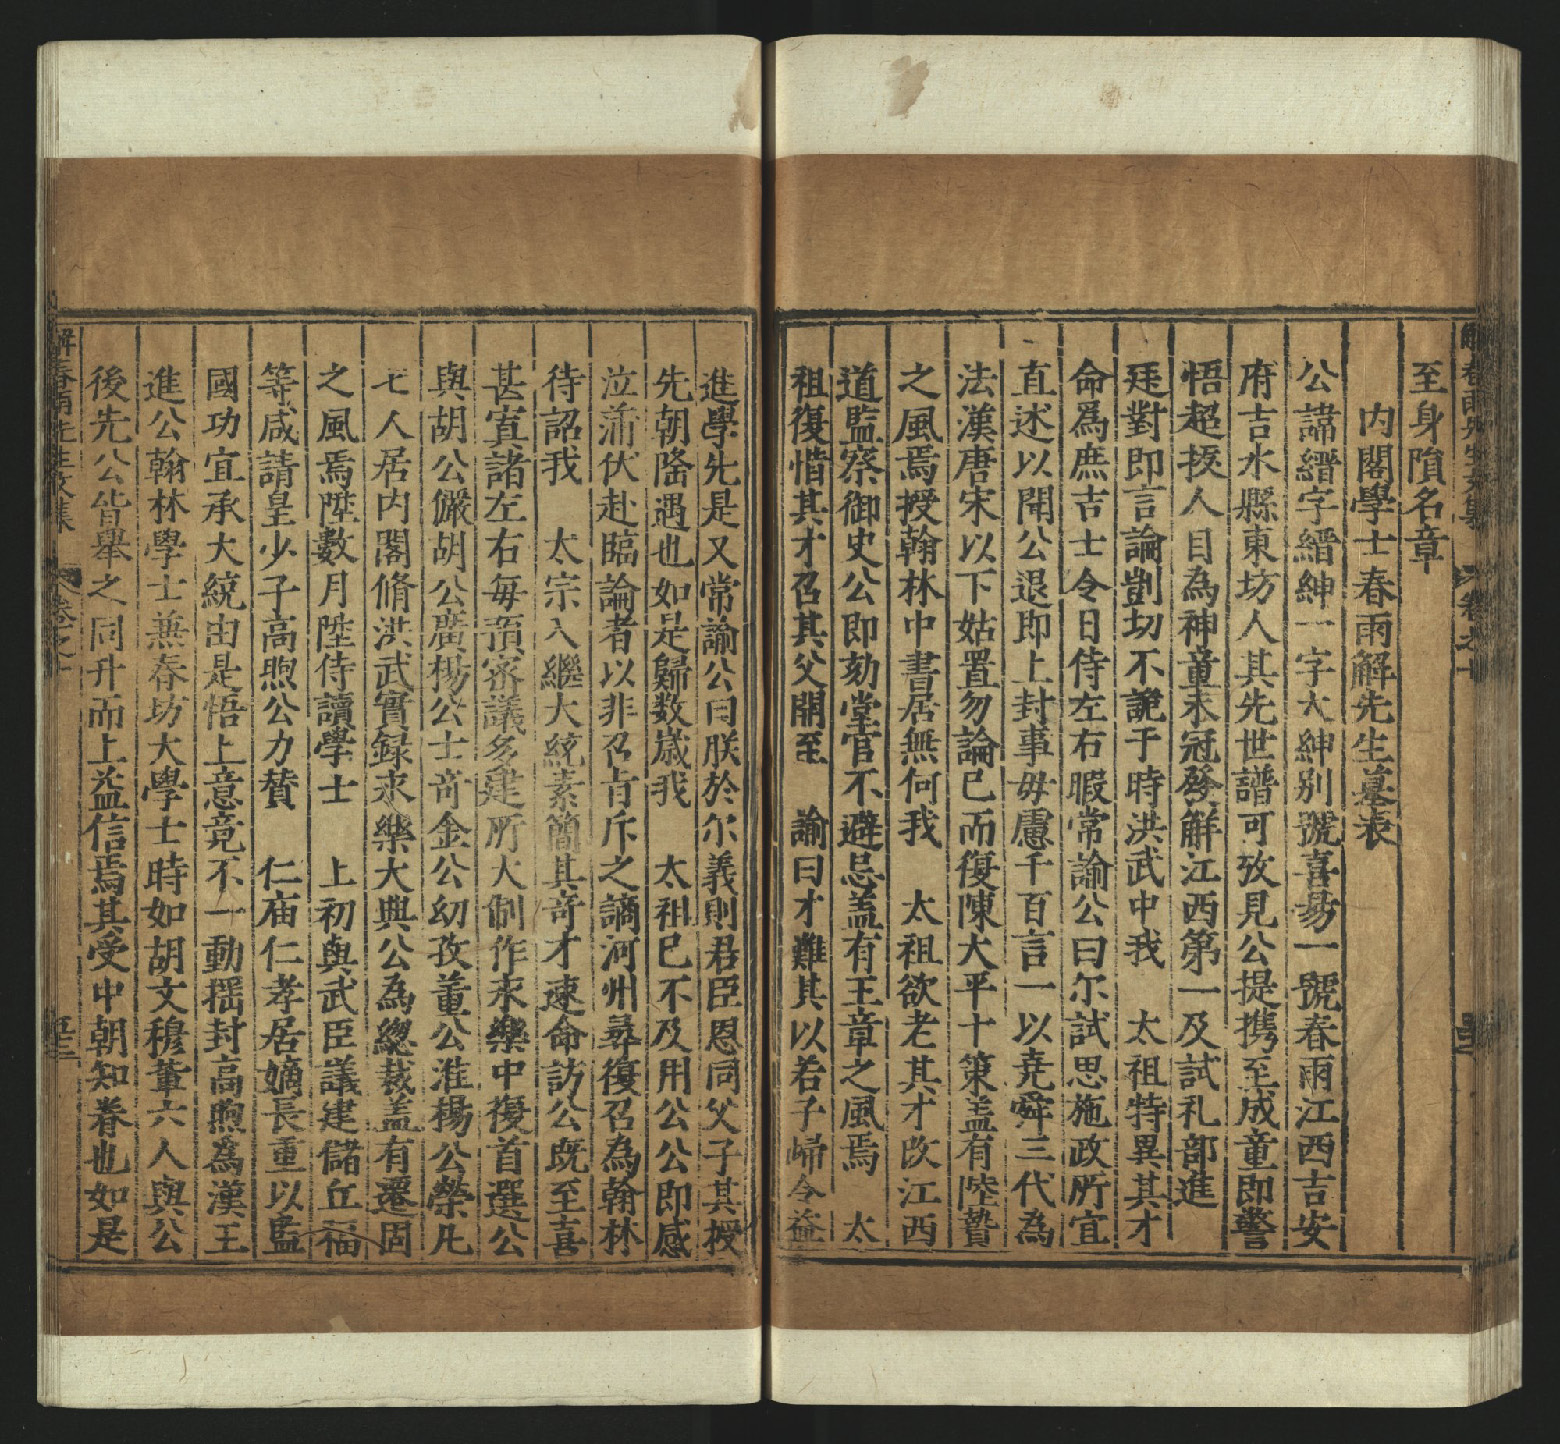 至身隕名章
内閣學士春雨解先生墓表
公諱縉字縉紳一字大紳别號喜易一號春雨江西吉安
府吉水縣東坊人其先世譜可攷見公提携至成童即警
悟超拔人目為神童未冠發解江西第一及試礼部進
廷對即言論剴切不詭于時洪武中我　太祖特異其才
命爲庶吉士令日侍左右暇常諭公曰尔試思施政所宜
直述以聞公退即上封事毋慮千百言一以堯舜三代為
法漢唐宋以下姑置勿論已而復陳大平十策盖有陸贄
之風焉授翰林中書居無何我　太祖欲老其才改江西
道監察御史公即劾堂官不避忌盖有王章之風焉　太
祖復惜其才召其父開至　諭曰才難其以若子歸令益
進學先是又常諭公曰朕於尔義則君臣恩同父子其授
先朝隆遇也如是歸数歲我　太祖已不及用公公即感
泣蒲伏赴臨論者以非召旨斥之謫河州尋復召為翰林
待詔我　太宗入繼大統素簡其奇才速命訪公既至喜
甚寘諸左右每預密議多建所大制作永樂中復首選公
與胡公儼胡公廣楊公士奇金公幼孜董公淮楊公榮凡
七人居内閣脩洪武實録永樂大典公為總裁盖有遷固
之風焉陞數月陞侍讀學士　上初與武臣議建儲丘福
等咸請皇少子高煦公力賛　仁庙仁孝居嫡長重以監
國功宜承大統由是悟上意竟不一動摇封高煦為漢王
進公翰林學士兼春坊大學士時如胡文穆董六人與公
後先公皆舉之同升而上益信焉其受中朝知眷也如是
解春雨先生文集　卷之十